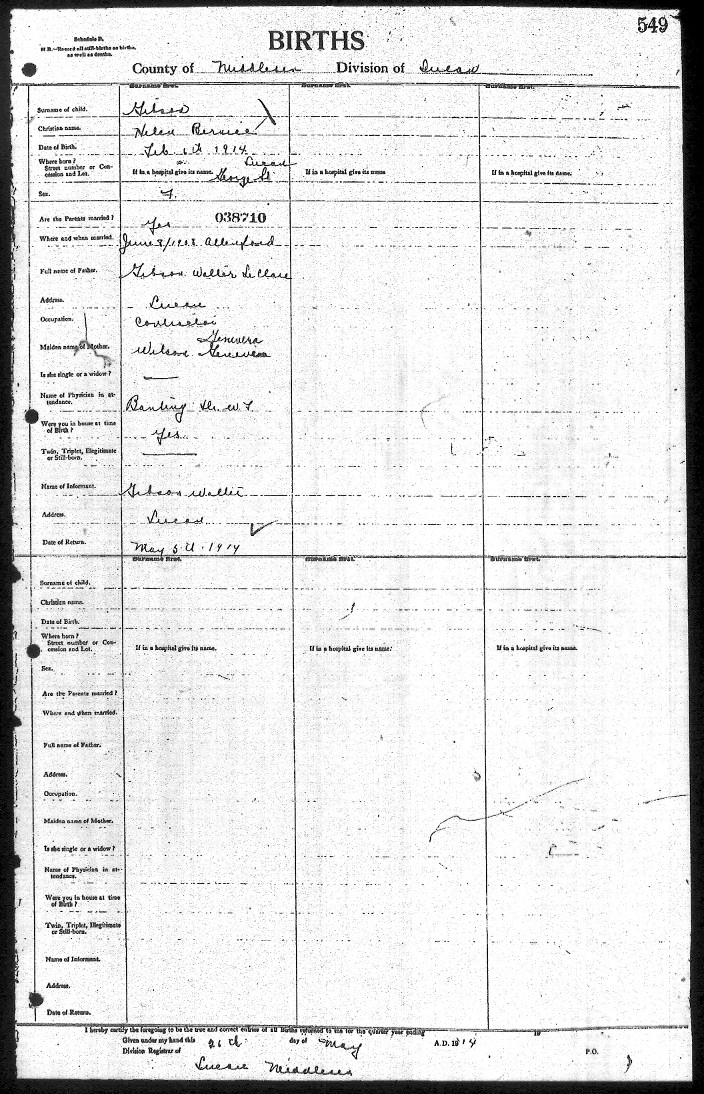 549
Schedule B.
N B.—Record all still-births as births, as well as deaths.
BIRTHS
County of Middlesex Division of Lucan
Surname first. Surname first. Surname first.
Surname of child. Gibson
Christian name. Helen Bernice
Date of Birth. Feb 6th 1914
Where born? Lucan
Street number or Concession and Lot. If in a hospital give its name. George St If in a hospital give its name If in a hospital give its name.
Sex. F.
Are the Parents married? Yes 038710
Where and when married. June 8/1908 Allenford
Full name of Father. Gibson Walter LeClare
Address. Lucan
Occupation. Contractor
Genevera
Maiden name of Mother. Wilson
Is she single or a widow? —
Name of Physician in attendance. Banting Dr. W T.
Were you in house at time of Birth? Yes
Twin, Triplet, Illegitimate or Still-born. —
Name of Informant. Gibson Walter
Address. Lucan
Date of Return. May 5th 1914
Surname first. Surname first. Surname first.
Surname of child.
Christian name.
Date of Birth.
Where born?
Street number or Concession and Lot. If in a hospital give its name. If in a hospital give its name. If in a hospital give its name.
Sex.
Are the Parents married?
Where and when married.
Full name of Father.
Address.
Occupation.
Maiden name of Mother.
Is she single or a widow?
Name of Physician in attendance.
Were you in house at time of Birth?
Twin, Triplet, Illegitimate or Still-born.
Name of Informant.
Address.
Date of Return.
I hereby certify the foregoing to be the true and correct entries of all Births returned to me for the quarter year ending 19
Given under my hand this 26th day of May A.D. 1914
Division Registrar of P.O.
Lucan Middlesex